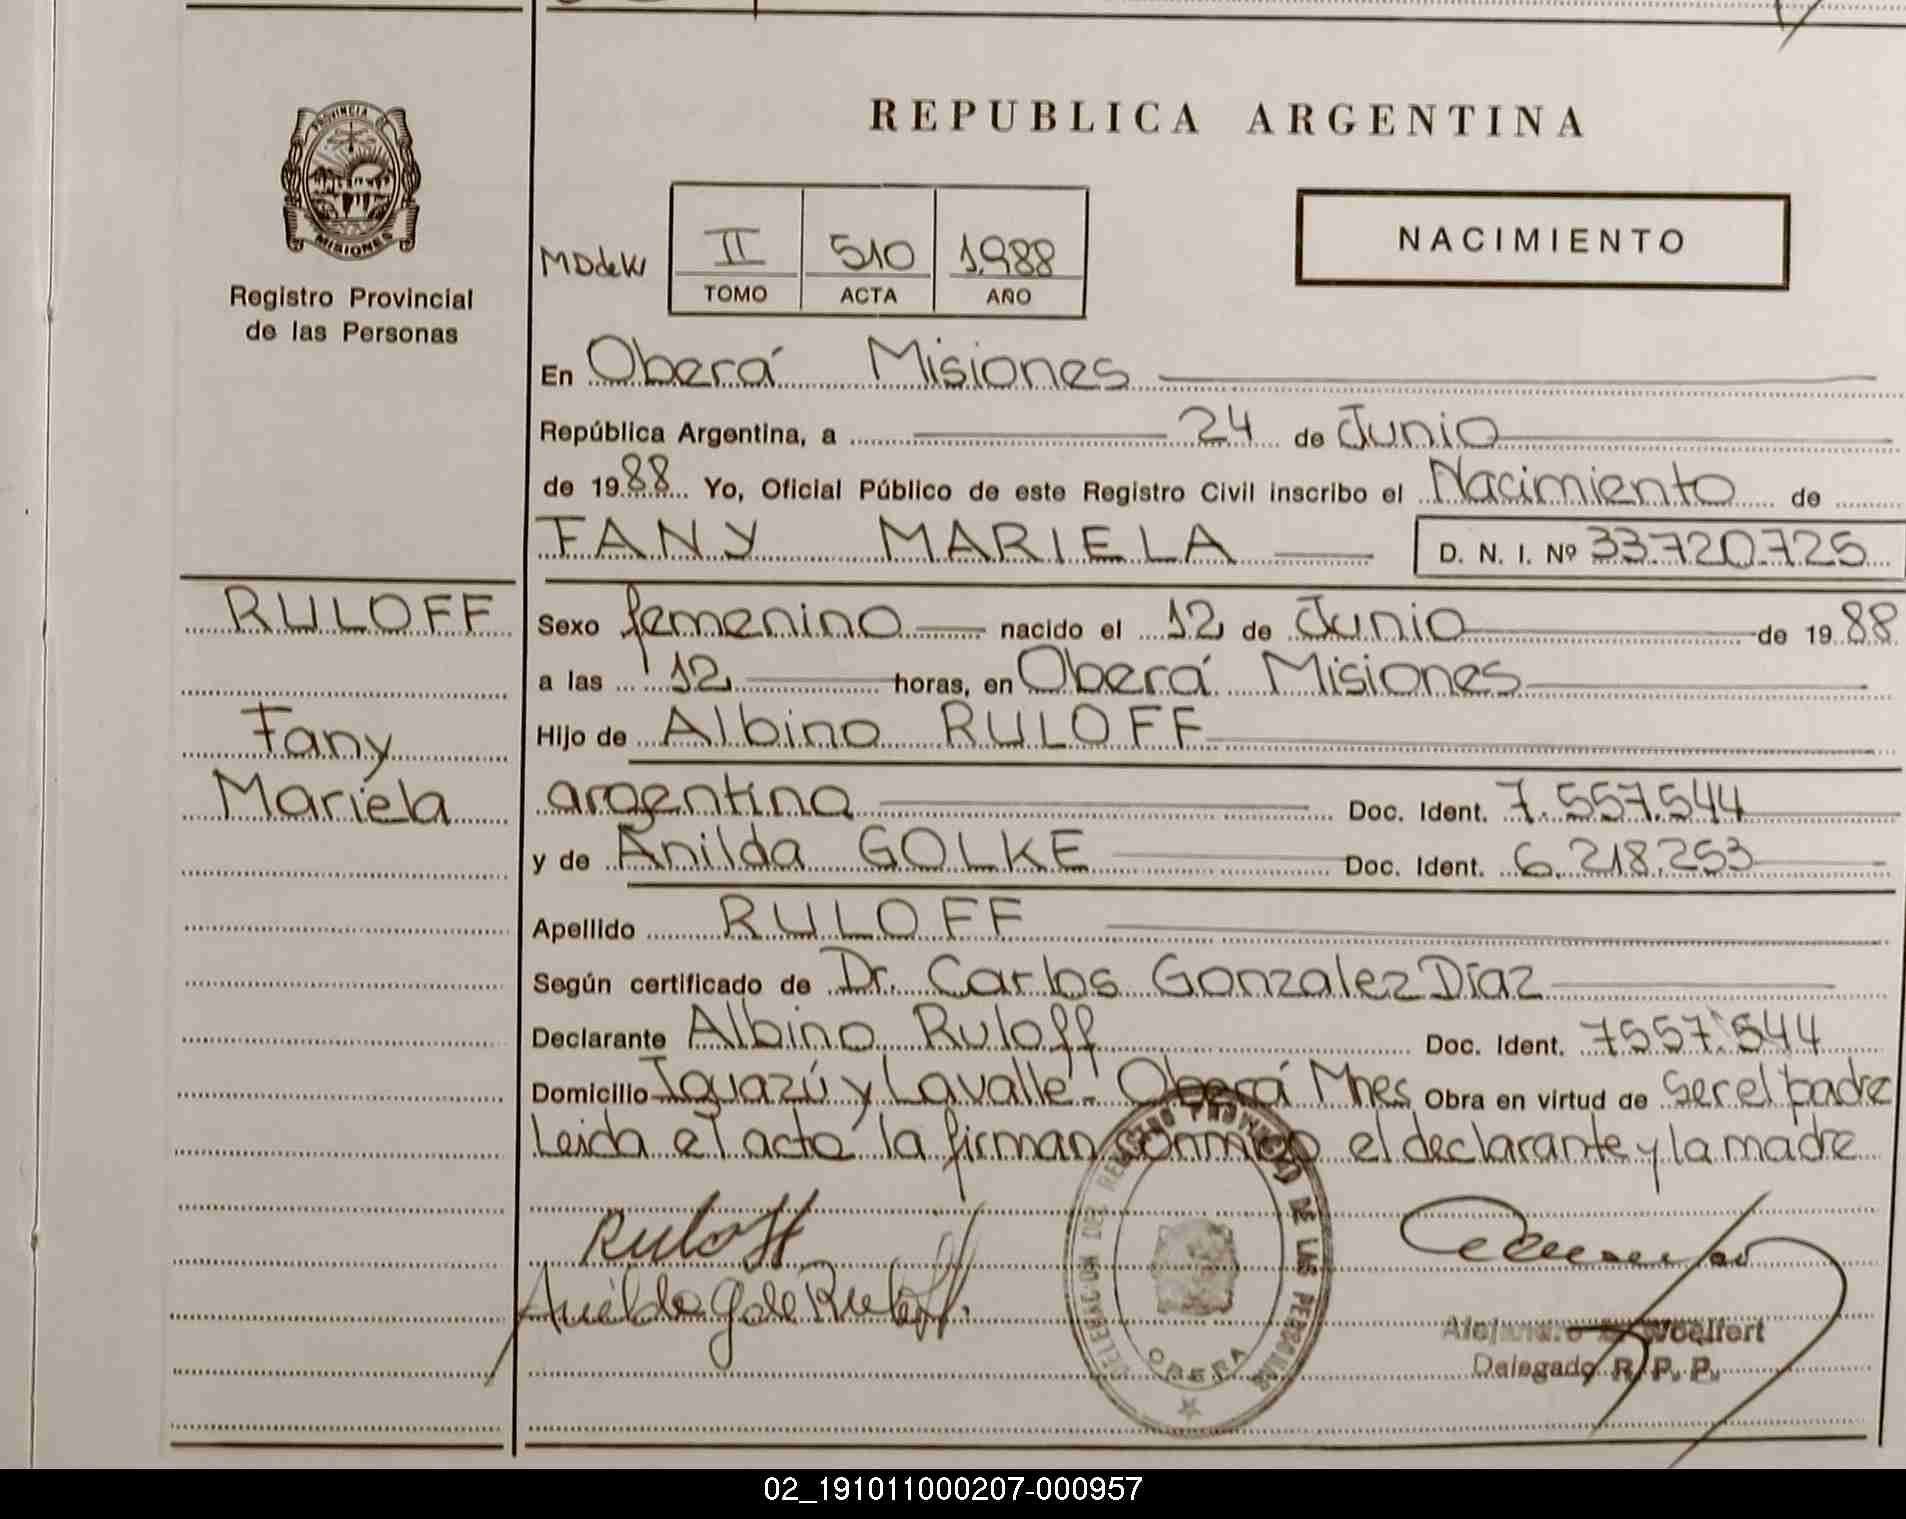 REPUBLICA ARGENTINA
PROVINCIA DE
MISIONES
Registro Provincial
de las Personas
NACIMIENTO
MDdeW
II 510 1.988
TOMO ACTA AÑO
En Oberá Misiones
República Argentina, a 24 de Junio
de 1988 Yo, Oficial Público de este Registro Civil inscribo el Nacimiento de
FANY MARIELA D. N. I. Nº 33.720.725
RULOFF
Fany
Mariela
Sexo femenino nacido el 12 de Junio de 1988
a las 12 horas, en Oberá Misiones
Hijo de Albino RULOFF
argentino Doc. Ident. 7.557.544
y de Anilda GOLKE Doc. Ident. 6.218.253
Apellido RULOFF
Según certificado de Dr. Carlos Gonzalez Díaz
Declarante Albino Ruloff Doc. Ident. 7557.544
Domicilio Iguazú y Lavalle - Oberá Mnes Obra en virtud de ser el padre
Leida el acto la firman conmigo el declarante y la madre
Ruloff
DELEGACION DEL REGISTRO PROVINCIAL DE LAS PERSONAS
OBERA
Woelfert
Delegado R. P. P.
02_191011000207-000957